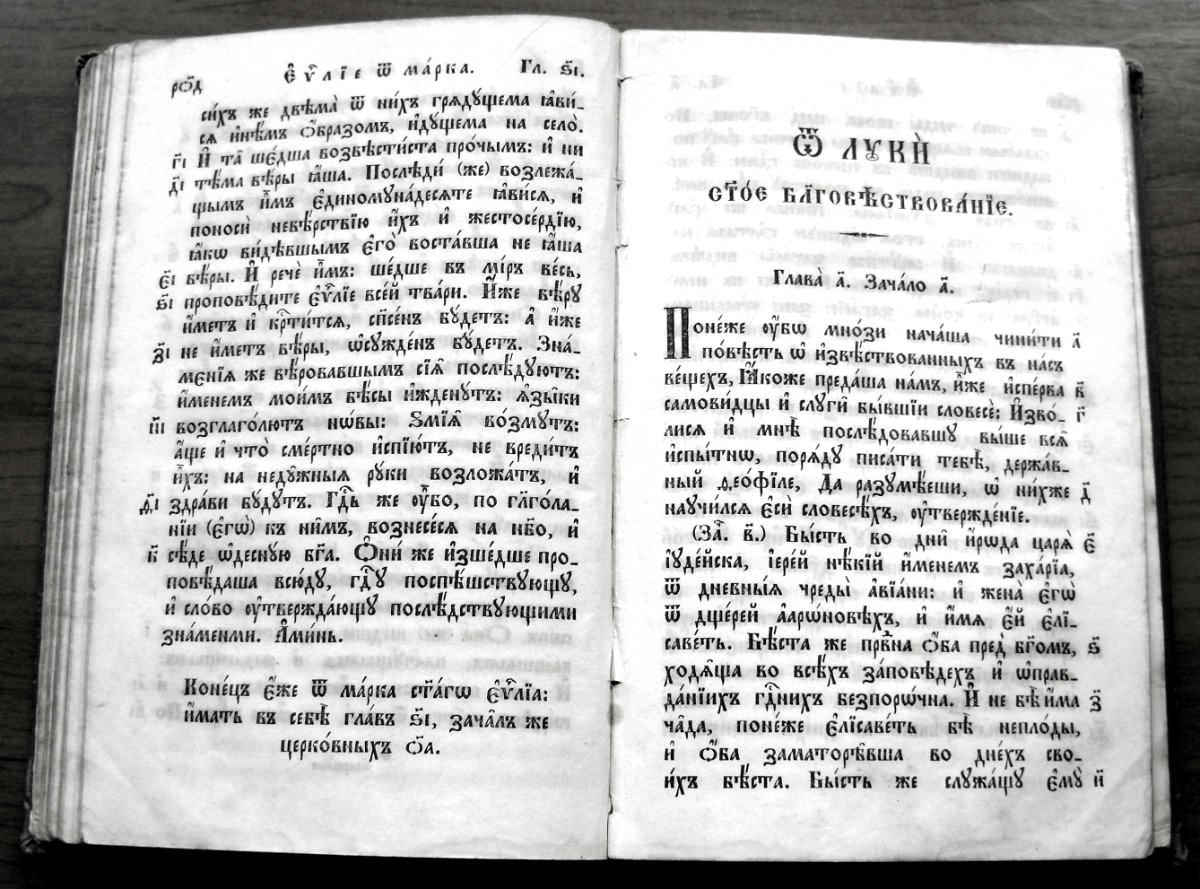 рѻ҃д Є҆ѵⷢ҇лїе ѿ ма́рка. Гл. ѕ҃і.
си́хъ же двѣма̀ ѿ ни́хъ грядꙋщема ꙗ҆ви-
ся и҆нѣ́мъ ѻ҆́бразомъ, и҆дꙋщема на село̀.
г҃і И҆ та̑ ше́дша возвѣсти́ста про́чымъ: и҆ ни
д҃і тѣ́ма вѣ́ры ꙗ҆́ша. Послѣди́ (же) возлежа́-
щымъ и҆̀мъ є҆диномꙋна́десяте ꙗ҆ви́ся, и҆
поносѝ невѣ́рствїю и҆́хъ и҆ жестосе́рдїю,
ꙗ҆́кѡ ви́дѣвшымъ є҆го̀ воста́вша не ꙗ҆́ша
є҃і вѣ́ры. И҆ речѐ и҆̀мъ: ше́дше въ мі́ръ ве́сь,
ѕ҃і проповѣ́дите є҆ѵⷢ҇лїе все́й тва́ри. И҆́же вѣ́рꙋ
и҆́метъ и҆ крⷭ҇ти́тся, спⷭ҇е́нъ бꙋ́детъ: а҆ и҆́же
з҃і не и҆́метъ вѣ́ры, ѡ҆сꙋжде́нъ бꙋ́детъ. Зна́-
мєнїя же вѣ́ровавшымъ сїя̑ послѣ́дꙋютъ:
и҆́менемъ мои́мъ бѣ́сы и҆жденꙋ́тъ: ꙗ҆зы́ки
и҃і возглаго́лютъ нѡ́вы: Ѕмїя̑ во́змꙋтъ:
а҆́ще и҆ что̀ сме́ртно и҆спїю́тъ, не вреди́тъ
и҆́хъ: на недꙋ́жныя рꙋ́ки возложа́тъ, и҆
ѳ҃і здра́ви бꙋ́дꙋтъ. Гдⷭ҇ь же ᲂу҆́бо, по гл҃го́ла-
нїи (є҆гѡ̀) къ ни̑мъ, вознесе́ся на нб҃о, и҆
к҃ сѣ́де ѡ҆деснꙋ́ю бг҃а. Ѻ҆ни́ же и҆зше́дше про-
повѣ́даша всю́дꙋ, гдⷭ҇ꙋ поспѣ́шствꙋющꙋ,
и҆ сло́во ᲂу҆твержда́ющꙋ послѣ́дствꙋющими
зна́меньми. А҆ми́нь.
Коне́цъ є҆́же ѿ ма́рка ст҃а́гѡ є҆ѵⷢ҇лїа:
и҆́мать въ себѣ̀ гла́въ ѕ҃і, зача́лъ же
церко́вныхъ ѻ҃а.
Ѿ ЛꙊКѝ
СТ҃О́Е БЛ҃ГОВѢСТВОВА́НЇЕ.
Глава̀ а҃. Зача́ло а҃.
Поне́же ᲂу҆́бѡ мно́зи нача́ша чини́ти а҃
по́вѣсть ѡ҆ и҆звѣ́ствованныхъ въ на́съ
ве́щехъ, Ꙗ҆́коже преда́ша на́мъ, и҆̀же и҆спе́рва в҃
самови́дцы и҆ слꙋги̑ бы́вшїи словесѐ: И҆зво́- г҃
лися и҆ мнѣ̀ послѣ́довавшꙋ вы́ше вся̑
и҆спы́тнѡ, поря́дꙋ писа́ти тебѣ̀, держа́в-
ный ѳ҆ео́фїле, Да разꙋмѣ́еши, ѡ҆ ни́хже д҃
наꙋчи́лся є҆сѝ словесѣ́хъ, ᲂу҆твержде́нїе.
(За҃. в҃.) Бы́сть во дни̑ и҆́рѡда царя̀ є҃
і҆ꙋде́йска, і҆ере́й нѣ́кїй и҆́менемъ заха́рїа,
ѿ дневны́я чреды̀ а҆вїа́ни: и҆ жена̀ є҆гѡ̀
ѿ дще́рей а҆арѡ́новѣхъ, и҆ и҆́мя є҆́й є҆лї-
саве́ть. Бѣ́ста же првⷣна ѻ҆́ба пред̾ бг҃омъ, ѕ҃
ходя̑ща во всѣ́хъ за́повѣдехъ и҆ ѡ҆прав-
да́нїихъ гдⷭ҇нихъ безпоро́чна. И҆ не бѣ̀ и҆́ма з҃
ча̑да, поне́же є҆лїсаве́ть бѣ̀ непло́ды,
и҆ ѻ҆́ба заматорѣ̑вша во дне́хъ сво-
и́хъ бѣ́ста. Бы́сть же слꙋжа́щꙋ є҆мꙋ̀ и҃